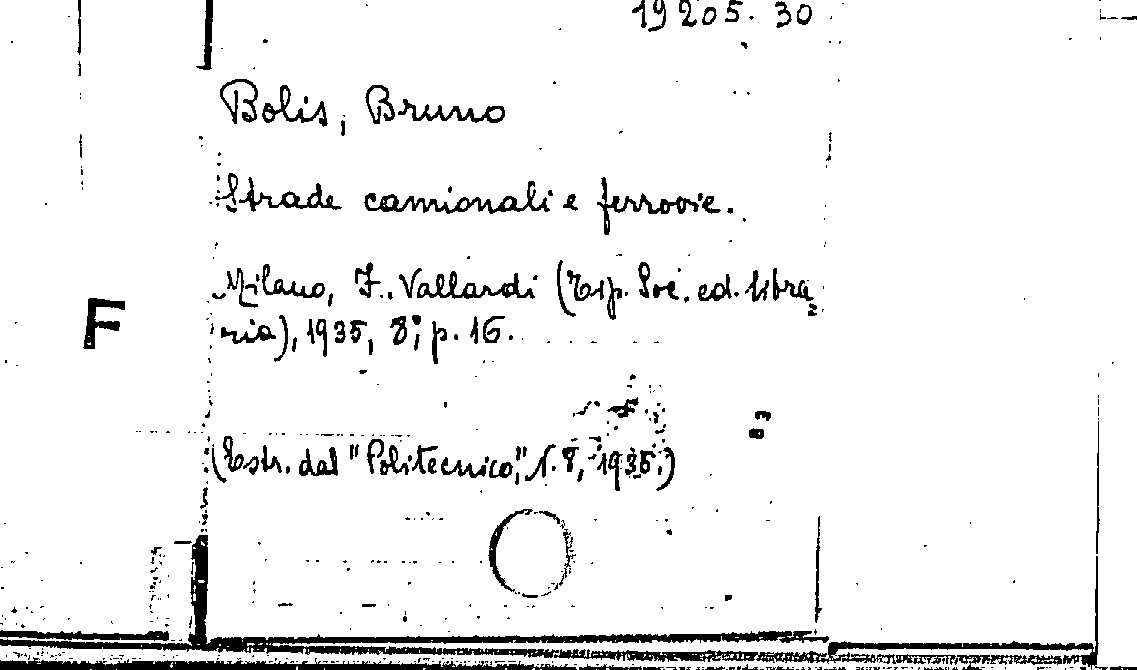 19205.30
Bolis, Bruno
Strade camionali e ferrovie.
F
Milano, F. Vallardi (Tip. Soc. ed. libra
ria), 1935, 8°, p. 16.
(Estr. dal "Politecnico", n. 8, 1935.)